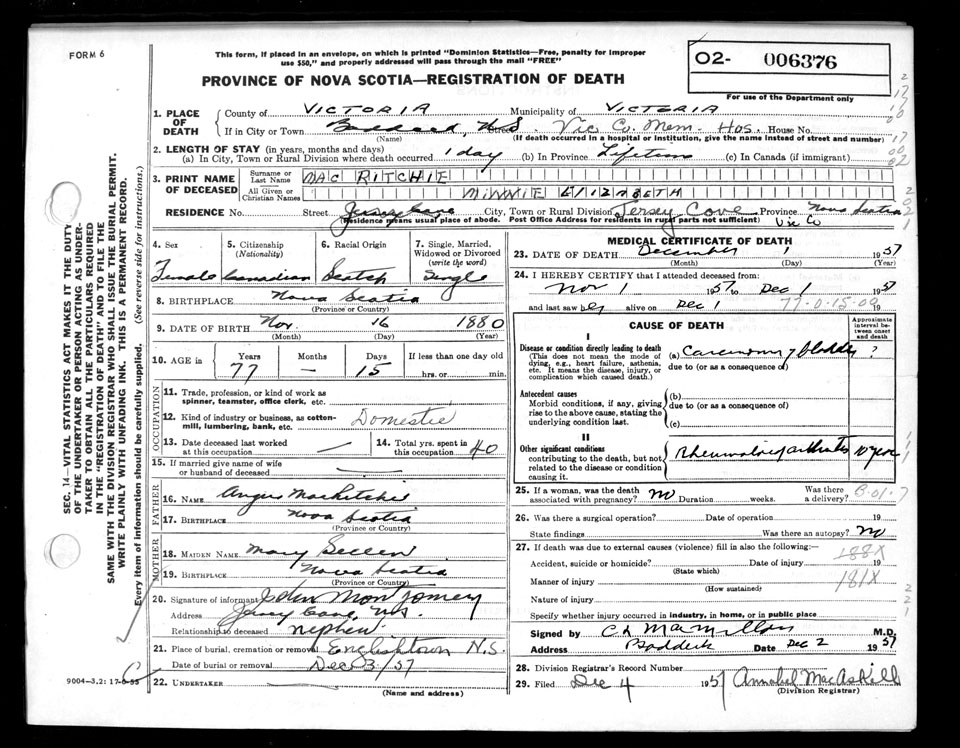 FORM 6
This form, if placed in an envelope, on which is printed "Dominion Statistics—Free, penalty for improper
use $50," and properly addressed will pass through the mail "FREE"
PROVINCE OF NOVA SCOTIA—REGISTRATION OF DEATH
02- 006376
For use of the Department only
1. PLACE OF DEATH
County of VICTORIA Municipality of VICTORIA
If in City or Town Baddeck, N.S. Street Vic Co. Mem. Hos. House No.
(Name) (If death occurred in a hospital or institution, give the name instead of street and number)
2. LENGTH OF STAY (in years, months and days)
(a) In City, Town or Rural Division where death occurred 1 day (b) In Province Lifetime (c) In Canada (if immigrant)
3. PRINT NAME OF DECEASED
Surname or Last Name MAC RITCHIE
All Given or Christian Names MINNIE ElizABETH
RESIDENCE No. Street Jersey Cove City, Town or Rural Division Jersey Cove Province Nova Scotia
(Residence means usual place of abode. Post Office Address for Residents in rural parts not sufficient) Vic Co
4. Sex
Female
5. Citizenship
(Nationality)
Canadian
6. Racial Origin
Scotch
7. Single, Married,
Widowed or Divorced
(write the word)
Single
8. BIRTHPLACE Nova Scotia
(Province or Country)
9. DATE OF BIRTH Nov. 16 1880
(Month) (Day) (Year)
10. AGE in Years Months Days If less than one day old
77 — 15 hrs. or min.
OCCUPATION
11. Trade, profession, or kind of work as
spinner, teamster, office clerk, etc.
12. Kind of industry or business, as cotton-
mill, lumbering, bank, etc. Domestic
13. Date deceased last worked
at this occupation
14. Total yrs. spent in
this occupation 40
15. If married give name of wife
or husband of deceased
FATHER
16. NAME Angus MacRitchie
17. BIRTHPLACE Nova Scotia
(Province or Country)
MOTHER
18. MAIDEN NAME Mary
19. BIRTHPLACE Nova Scotia
(Province or Country)
20. Signature of informant John Montgomery
Address Jersey Cove, N.S.
Relationship to deceased nephew
21. Place of burial, cremation or removal Englishtown N.S.
Date of burial or removal Dec 3/57
22. UNDERTAKER
(Name and address)
9004—3.2: 17-6-55
MEDICAL CERTIFICATE OF DEATH
23. DATE OF DEATH December 1 1957
(Month) (Day) (Year)
24. I HEREBY CERTIFY that I attended deceased from:
Nov 1 1957 to Dec 1 1957
and last saw her alive on Dec 1 19
77-0-15-09
CAUSE OF DEATH
Approximate
interval be-
tween onset
and death
I
Disease or condition directly leading to death
(This does not mean the mode of
dying, e.g., heart failure, asthenia,
etc. It means the disease, injury, or
complication which caused death.)
(a) Carcinoma of bladder ?
due to (or as a consequence of)
Antecedent causes
Morbid conditions, if any, giving
rise to the above cause, stating the
underlying condition last.
(b)
due to (or as a consequence of)
(c)
II
Other significant conditions
contributing to the death, but not
related to the disease or condition
causing it.
Rheumatoid arthritis 10 years
25. If a woman, was the death
associated with pregnancy? No Duration weeks. Was there
a delivery?
26. Was there a surgical operation? Date of operation 19
State findings Was there an autopsy? No
27. If death was due to external causes (violence) fill in also the following:—
188X
Accident, suicide or homicide? Date of injury 19
(State which)
Manner of injury 181X
(How sustained)
Nature of injury
Specify whether injury occurred in industry, in home, or in public place
Signed by C L MacMillan M.D.
Address Baddeck Date Dec 2 1957
28. Division Registrar's Record Number
29. Filed Dec 4 1957 Annabel MacAskill
(Division Registrar)
SEC. 14—VITAL STATISTICS ACT MAKES IT THE DUTY
OF THE UNDERTAKER OR PERSON ACTING AS UNDER-
TAKER TO OBTAIN ALL THE PARTICULARS REQUIRED
IN THE "REGISTRATION OF DEATH" AND TO FILE THE
SAME WITH THE DIVISION REGISTRAR WHO SHALL ISSUE THE BURIAL PERMIT.
WRITE PLAINLY WITH UNFADING INK. THIS IS A PERMANENT RECORD.
Every item of information should be carefully supplied. (See reverse side for instructions.)